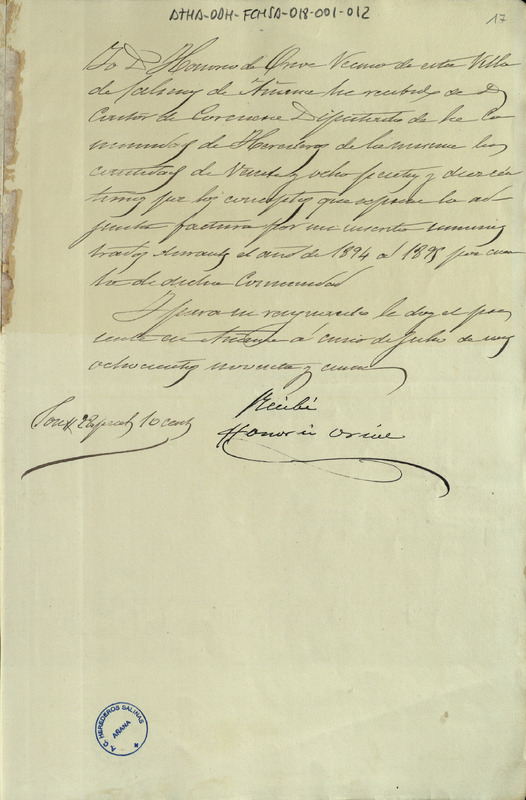 ATHA-DDH-FCHSA-018-001-012
17
Yo D. Honorio de Orive Vecino de esta Villa
de Salinas de Añana he recibido de D.
de Corcuera Diputado de la Co
munidad de Herederos de la misma la
cantidad de Veinte y ocho pesetas y diez cén
timos por los conceptos que espresa la ad
junta factura por mi cuenta suminis
trados durante el año de 1894 al 1895 por cuen
ta de dicha Comunidad
Y para su resguardo le doy el pre
sente en Añana á cinco de Julio de mil
ochocientos noventa y cinco
Son 28 pesets 10 cents
Recibí
Honorio Orive
A.C. HEREDEROS SALINAS
AÑANA